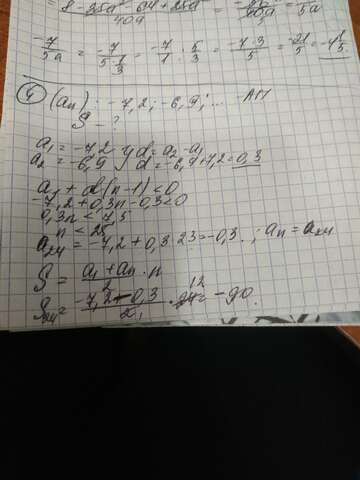 = 8 - 35a² - 64 + 35a² / 40a = = / 5a
-7/5a = -7/5·1/3 = -7/1 · 5/3 = -7·3/5 = -21/5 = -4 1/5
④ (an): -7,2; -6,9; ... - АП
S - ?
a₁ = -7,2 } d = a₂ - a₁
a₂ = -6,9 } d = -6,9 + 7,2 = 0,3
a₁ + d(n-1) < 0
-7,2 + 0,3n - 0,3 < 0
0,3n < 7,5
n < 25
a₂₄ = -7,2 + 0,3 · 23 = -0,3. ; an = a₂₄
S = a₁ + an / 2 · n
S₂₄ = -7,2 - 0,3 / 2 · 24 12 = -90.